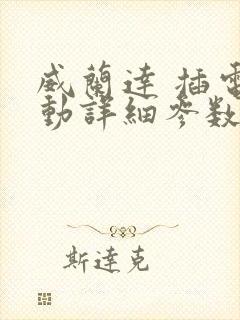 威蘭達 插電
動詳細參数
斯達克